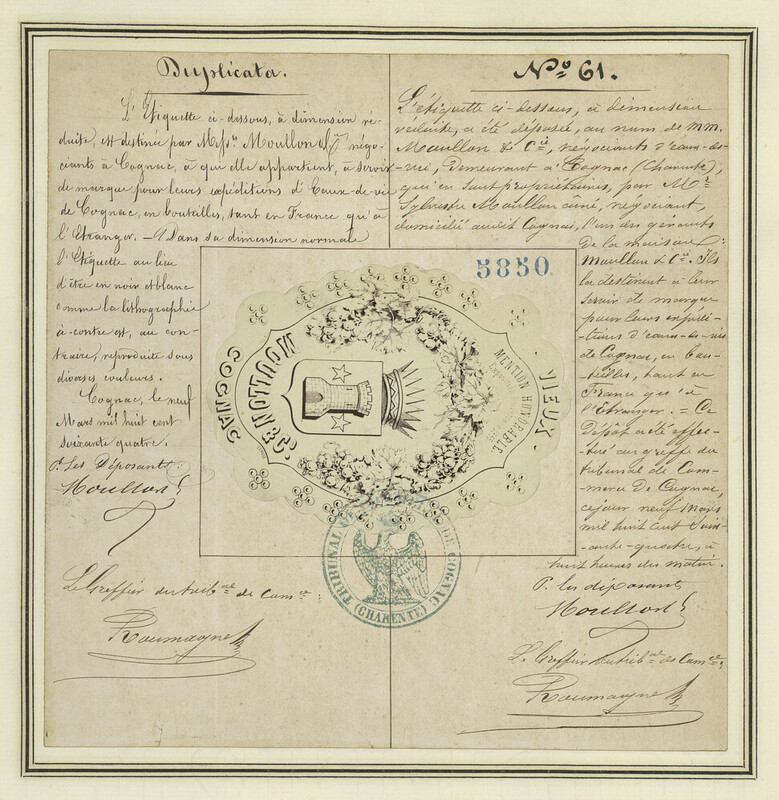 Duplicata.
L'Etiquette ci-dessous, à dimension ré-
duite, est destinée par MM. Moullon & Cie négo-
ciants à Cognac, à qui elle appartient, à servir
de marque pour leurs expéditions d'Eaux-de-vie
de Cognac, en bouteilles, tant en France qu'à
l'Etranger. — Dans sa dimension normale
l'Etiquette au lieu
d'être en noir et blanc
comme la lithographie
ci-contre est, au con-
traire, reproduite sous
diverses couleurs.
Cognac, le neuf
Mars mil huit cent
soixante quatre.
P. Les Déposants
Moullon
Le Greffier du tribal de Comce:
Roumagne
No 61.
L'étiquette ci-dessous, à dimension
réduite, a été déposée, au nom de MM.
Moullon & Cie, négociants d'eaux-de-
-vie, demeurant à Cognac (Charente),
qui en sont propriétaires, par Mr
Sylvestre Moullon aîné, négociant,
domicilié audit Cognac, l'un des gérants
de la maison
Moullon & Cie. Ils
la destinent à leur
servir de marque
pour leurs expédi-
-tions d'eaux-de-vie
de Cognac, en bou-
-teilles, tant en
France qu'à
l'Etranger. = Ce
Dépôt a été effec-
-tué au greffe du
tribunal de Com-
-merce de Cognac,
ce jour neuf Mars
mil huit cent Soix-
-ante-quatre, à
huit heures du matin.
P. les déposants
Moullon
Le Greffier du trib.al de Comce:
Roumagne
5850
VIEUX
MENTION HONORABLE
MOULLON & Cie
COGNAC
TRIBUNAL DE COMMERCE DE COGNAC
(CHARENTE)